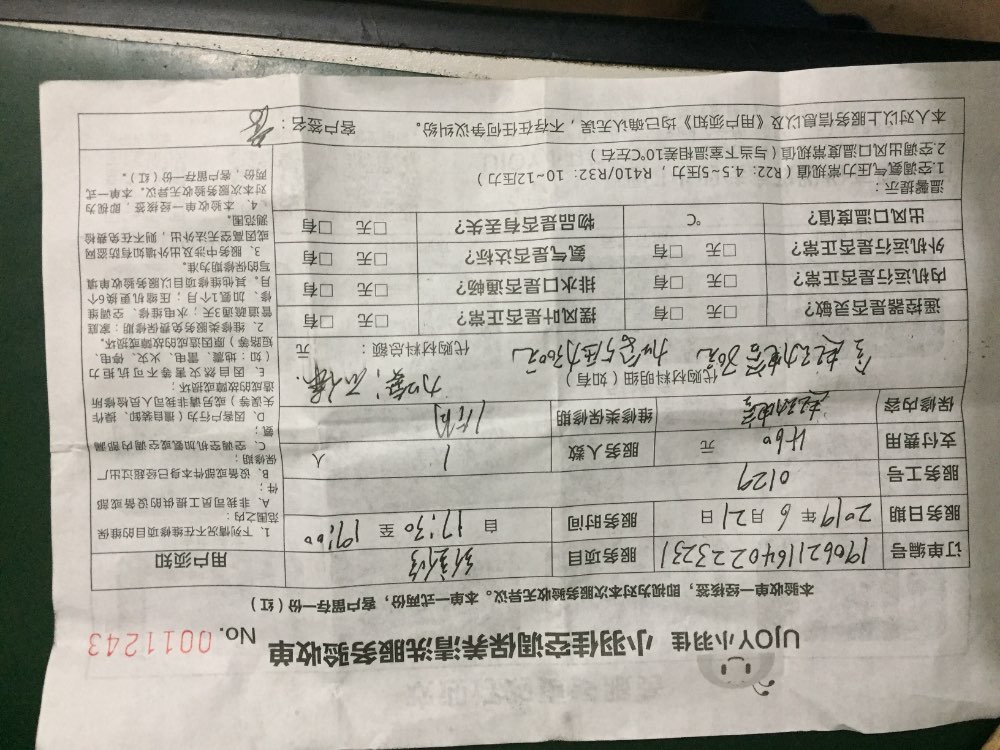 UJOY小羽佳 小羽佳空调保养清洗服务验收单 No. 0011243
本验收单一经接签，即视为对本次服务验收无异议。本单一式两份，客户留存一份（红）
订单编号 1906211640223231 服务项目
服务日期 2019年6月21日 服务时间 自 17:30 至 19:00
服务工号 0129
支付费用 元 服务人数 1 人
保修内容 维修类保修期
代购材料明细（如有）
代购材料总额： 元
遥控器是否灵敏？ □无 □有 摆风叶是否正常？ □无 □有
内机运行是否正常？ □无 □有 排水口是否通畅？ □无 □有
外机运行是否正常？ □无 □有 氨气是否达标？ □无 □有
出风口温度值？ ℃ 物品是否有丢失？ □无 □有
温馨提示：
1.空调氨气压力常规值（R22：4.5~5压力，R410/R32：10~12压力）
2空调出风口温度常规值（与当下室温相差10℃左右）
本人对以上服务信息以及《用户须知》均已确认无误，不存在任何争议纠纷。 客户签名：
用户须知
1、下列情况不在维修项目的维保
范围之内：
A、非我司员工提供的设备或部
件；
B、设备或部件本身已经超过出厂
保修期；
C、空调空机加氨或空调内部漏
氨；
D、因客户行为（擅自装卸、操作
失误等）或另请非我司人员检修所
造成的故障或损坏；
E、因自然灾害等不可抗拒力
（如：地震、雷电、火灾、停电、
短路等）原因造成的故障或损坏。
2、维修类服务免费保修期：家庭
管道疏通3天；水电维修、空调维
修、加氨1个月；压缩机更换6个
月。其他维修项目以服务验收单填
写的保修期为准。
3、服务中涉及出外墙如有防盗网
或因高空无法外出，则不在免费检
测范围。
4、本验收单一经接签，即视为
对本次服务验收无异议。本单一式
两份，客户留存一份（红）。